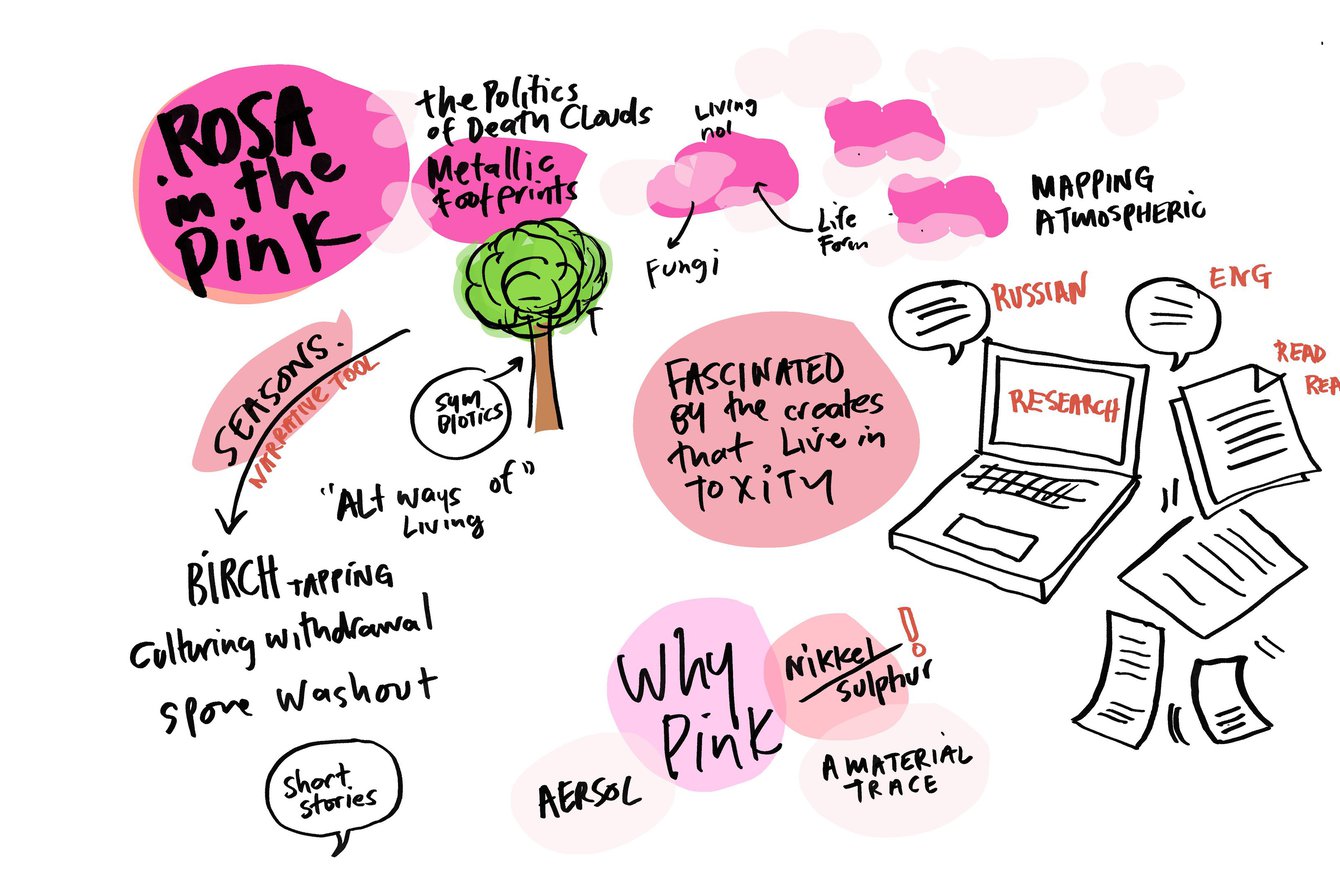 ROSA
in the
Pink
the Politics
of Death Clouds
Metallic
Footprints
Living
not
Life
Form
Fungi
MAPPING
ATMOSPHERIC
SEASONS.
NARRATIVE TOOL
SYM
BIOTICS
"ALT ways of"
Living
BIRCH TAPPING
Culturing withdrawal
Spore washout
Short
stories
FASCINATED
By the creates
that Live in
TOXITY
RUSSIAN
ENG
RESEARCH
READ
Why
Pink
Nikkel
Sulphur
!
AERSOL
A MATERIAL
TRACE